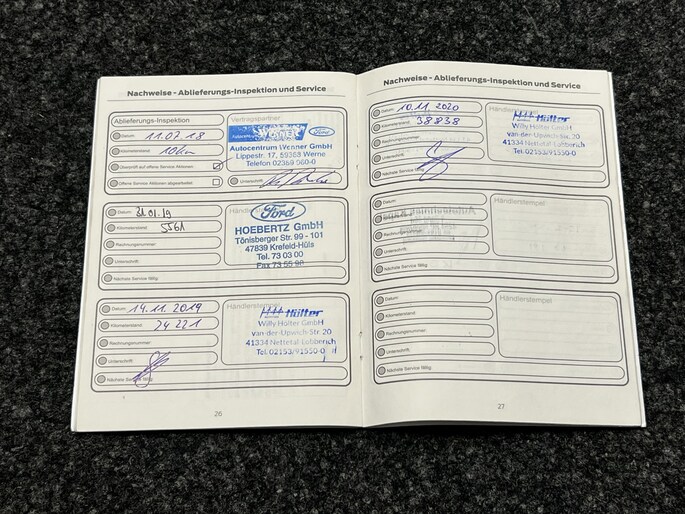 Nachweise - Ablieferungs-Inspektion und Service
Ablieferungs-Inspektion
Datum: 11.07.18
Kilometerstand: 10km
Überprüft auf offene Service Aktionen:
Offene Service Aktionen abgearbeitet:
Vertragspartner
Ford
Autocentrum Wenner GmbH
Lippestr. 17, 59368 Werne
Telefon 02389
Unterschrift:
Datum: 31.01.19
Kilometerstand: 5561
Rechnungsnummer:
Unterschrift:
Nächste Service fällig:
Ford
HOEBERTZ GmbH
Tönisberger Str. 99 - 101
47839 Krefeld-Hüls
Tel. 73 03 00
Fax 73 55 90
Datum: 14.11.2019
Kilometerstand: 24221
Rechnungsnummer:
Unterschrift:
Nächste Service fällig:
Händlerstempel
Hölter
Willy Hölter GmbH
van-der-Upwich-Str. 20
41334 Nettetal-Lobberich
Tel. 02153/91550-0
26
Nachweise - Ablieferungs-Inspektion und Service
Datum: 10.11.2020
Kilometerstand: 38838
Rechnungsnummer:
Unterschrift:
Nächste Service fällig:
Hölter
Willy Hölter GmbH
van-der-Upwich-Str. 20
41334 Nettetal-Lobberich
Tel. 02153/91550-0
Datum:
Kilometerstand:
Rechnungsnummer:
Unterschrift:
Nächste Service fällig:
Händlerstempel
Datum:
Kilometerstand:
Rechnungsnummer:
Unterschrift:
Nächste Service fällig:
Händlerstempel
27